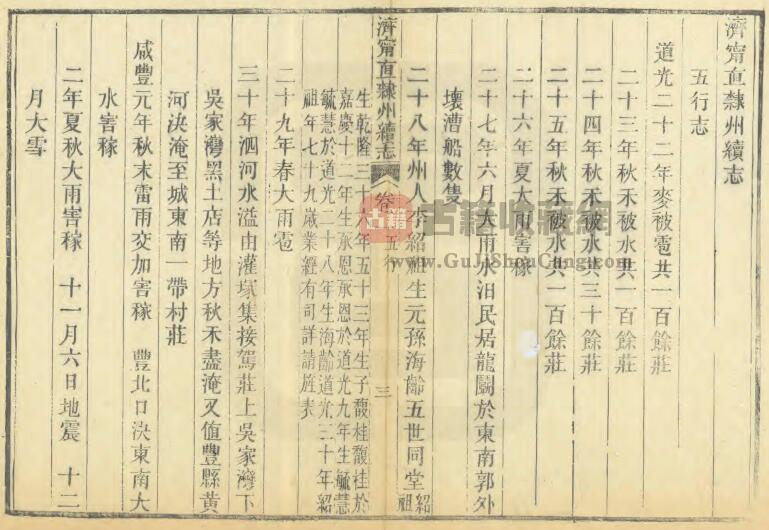 濟甯直隸州續志
五行志
道光二十二年麥被雹共一百餘莊
二十三年秋禾被水共一百餘莊
二十四年秋禾被水共三十餘莊
二十五年秋禾被水共一百餘莊
二十六年夏大雨害稼
二十七年六月大雨水汨民居龍鬭於東南郭外
壞漕船數隻
二十八年州人李紹祖生元孫海齡五世同堂紹祖
濟甯直隸州續志 卷 五行 三
生乾隆三十六年五十三年生子馥桂馥桂於
嘉慶十二年生承恩承恩於道光九年生毓慧
毓慧於道光二十八年生海齡道光三十年紹
祖年七十九歲業經有司詳請旌表
二十九年春大雨雹
三十年泗河水溢由灌塚集接駕莊上吳家灣下
吳家灣黑土店等地方秋禾盡淹又值豐縣黃
河決淹至城東南一帶村莊
咸豐元年秋末雷雨交加害稼 豐北口決東南大
水害稼
二年夏秋大雨害稼 十一月六日地震 十二
月大雪
古籍
古籍收藏網
www.GuJiShouCang.com